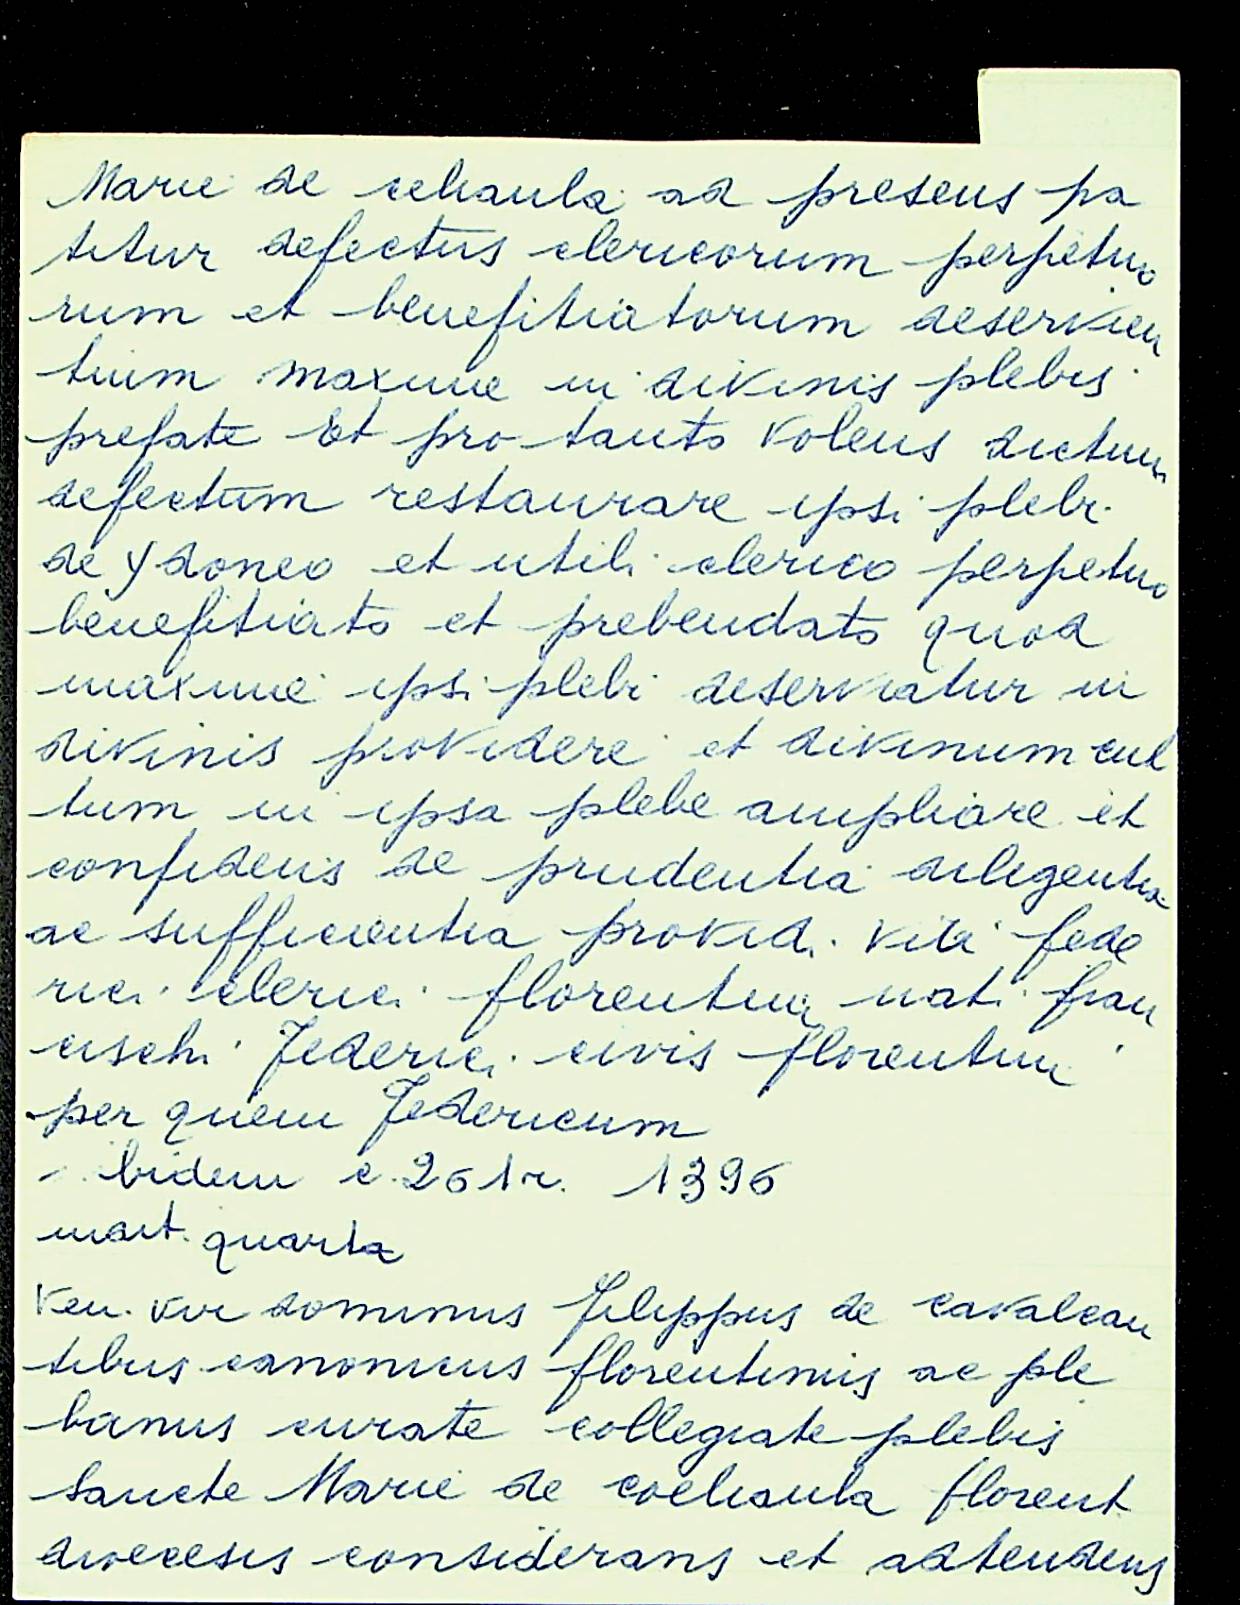 Marie de celiaula ad presens pa
titur defectus clericorum perpetuo
rum et benefitiatorum deservien
tium maxime in divinis plebis
prefate Et pro tanto volens dictum
defectum restaurare ipsi plebi
de ydoneo et utili clerico perpetuo
benefitiato et prebendato quod
maxime ipsi plebi deserviatur in
divinis providere et divinum cul
tum in ipsa plebe ampliare et
confidens de prudentia diligentia
ac sufficientia provid. viti fede
rici clerici florentini nati fran
cischi Federici civis florentini
per quem Federicum
ibidem c. 261r. 1396
mart. quarta
Ven. vir dominus Filippus de cavalcan
tibus canonicus florentinus ac ple
banus curate collegiate plebis
Sancte Marie de coeliaula florent
diocesis considerans et adtendens